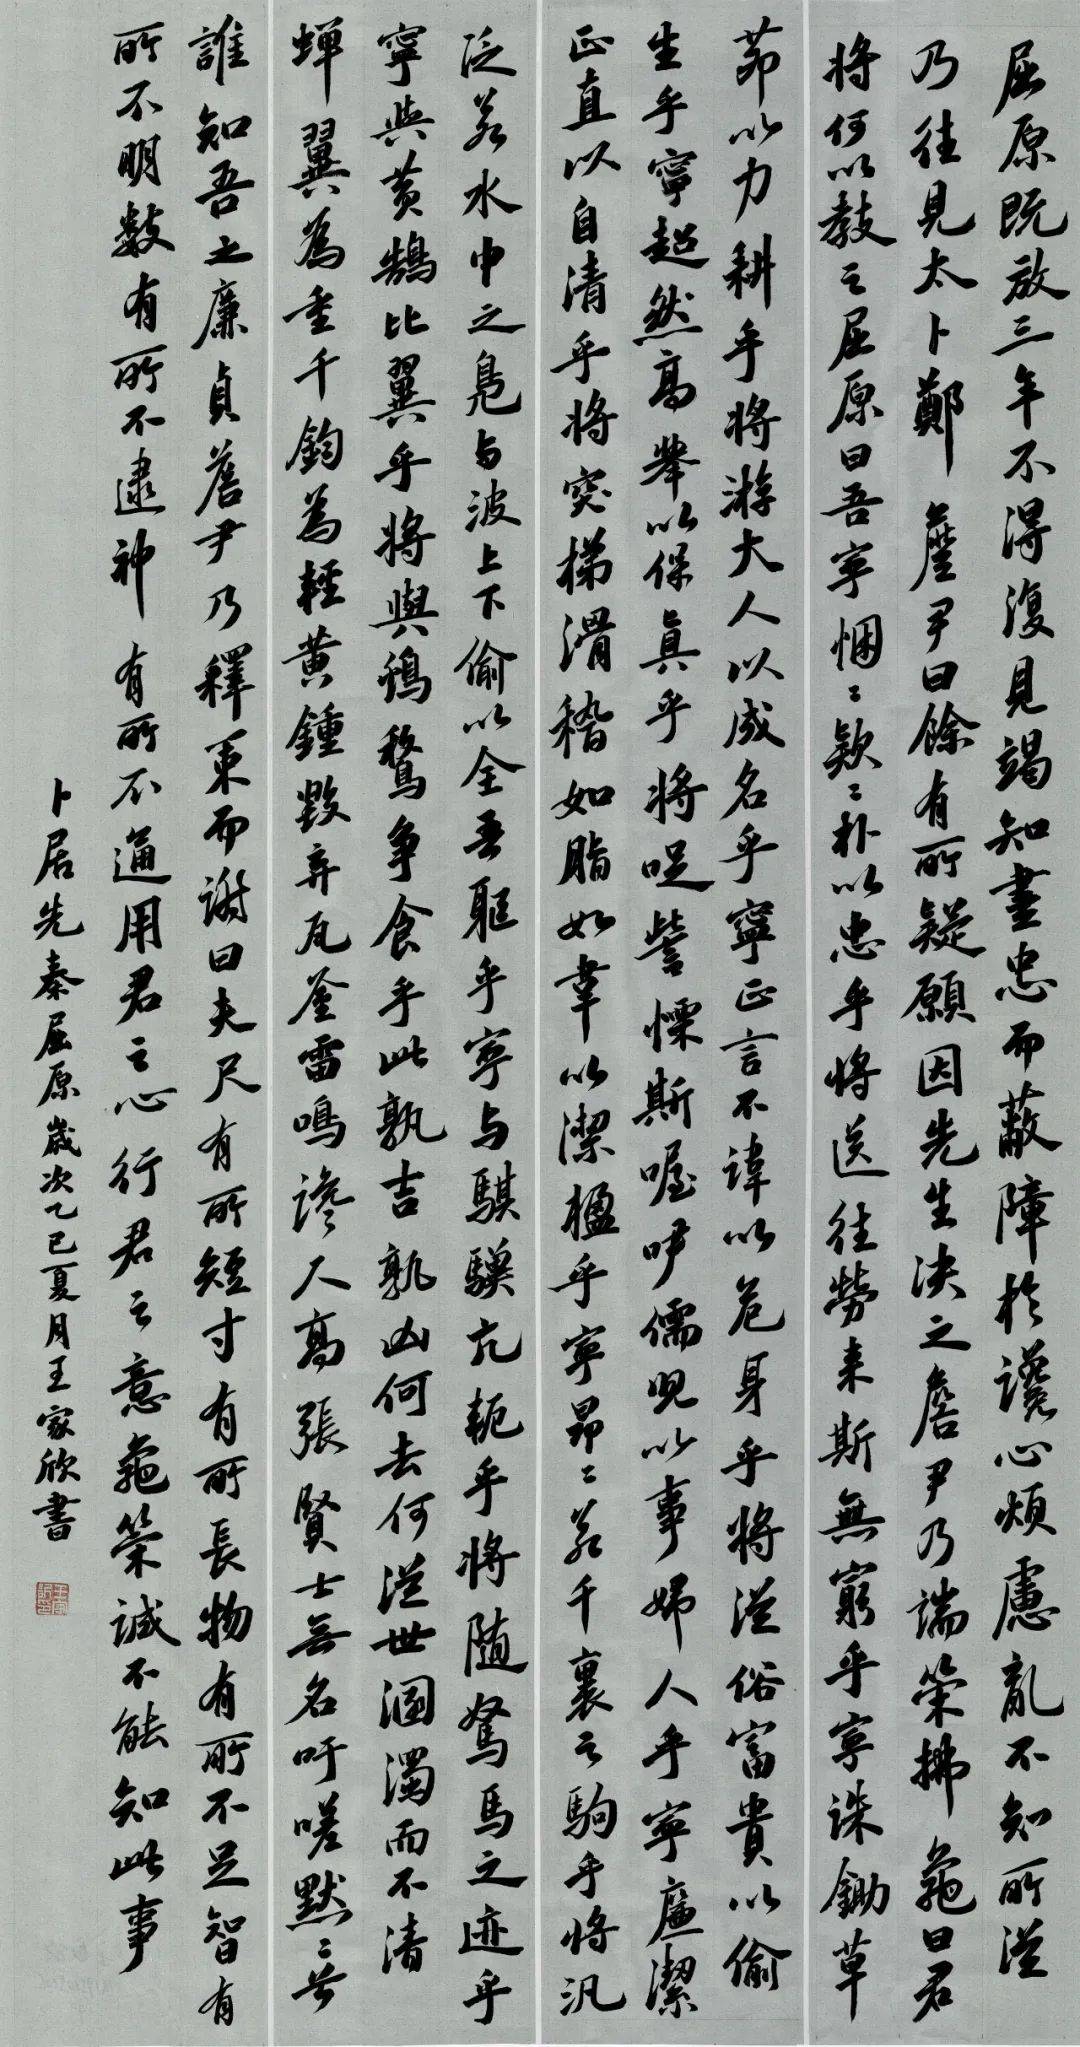 屈原既放三年不得復見竭知盡忠而蔽障於讒心煩慮亂不知所從
乃往見太卜鄭詹尹曰餘有所疑願因先生決之詹尹乃端策拂龜曰君
將何以教之屈原曰吾寧悃〻款〻朴以忠乎將送往勞来斯無窮乎寧誅鋤草
茆以力耕乎將游大人以成名乎寧正言不諱以危身乎將從俗富貴以偷
生乎寧超然高舉以保真乎將哫訾慄斯喔咿儒兒以事婦人乎寧廉潔
正直以自清乎將突梯滑稽如脂如韋以潔楹乎寧昂〻若千裏之駒乎將汎
泛若水中之鳧与波上下偷以全吾軀乎寧与騏驥亢軛乎將随駑馬之迹乎
寧與黃鵠比翼乎將與鴉鶩争食乎此孰吉孰凶何去何從世溷濁而不清
蝉翼為重千鈞為輕黄鍾毀弃瓦釜雷鳴讒人高張賢士無名吁嗟默〻兮
誰知吾之廉貞詹尹乃釋策而謝曰夫尺有所短寸有所長物有所不足智有
所不明数有所不逮神有所不通用君之心行君之意龜策誠不能知此事
卜居先秦屈原歲次乙巳夏月王家欣書